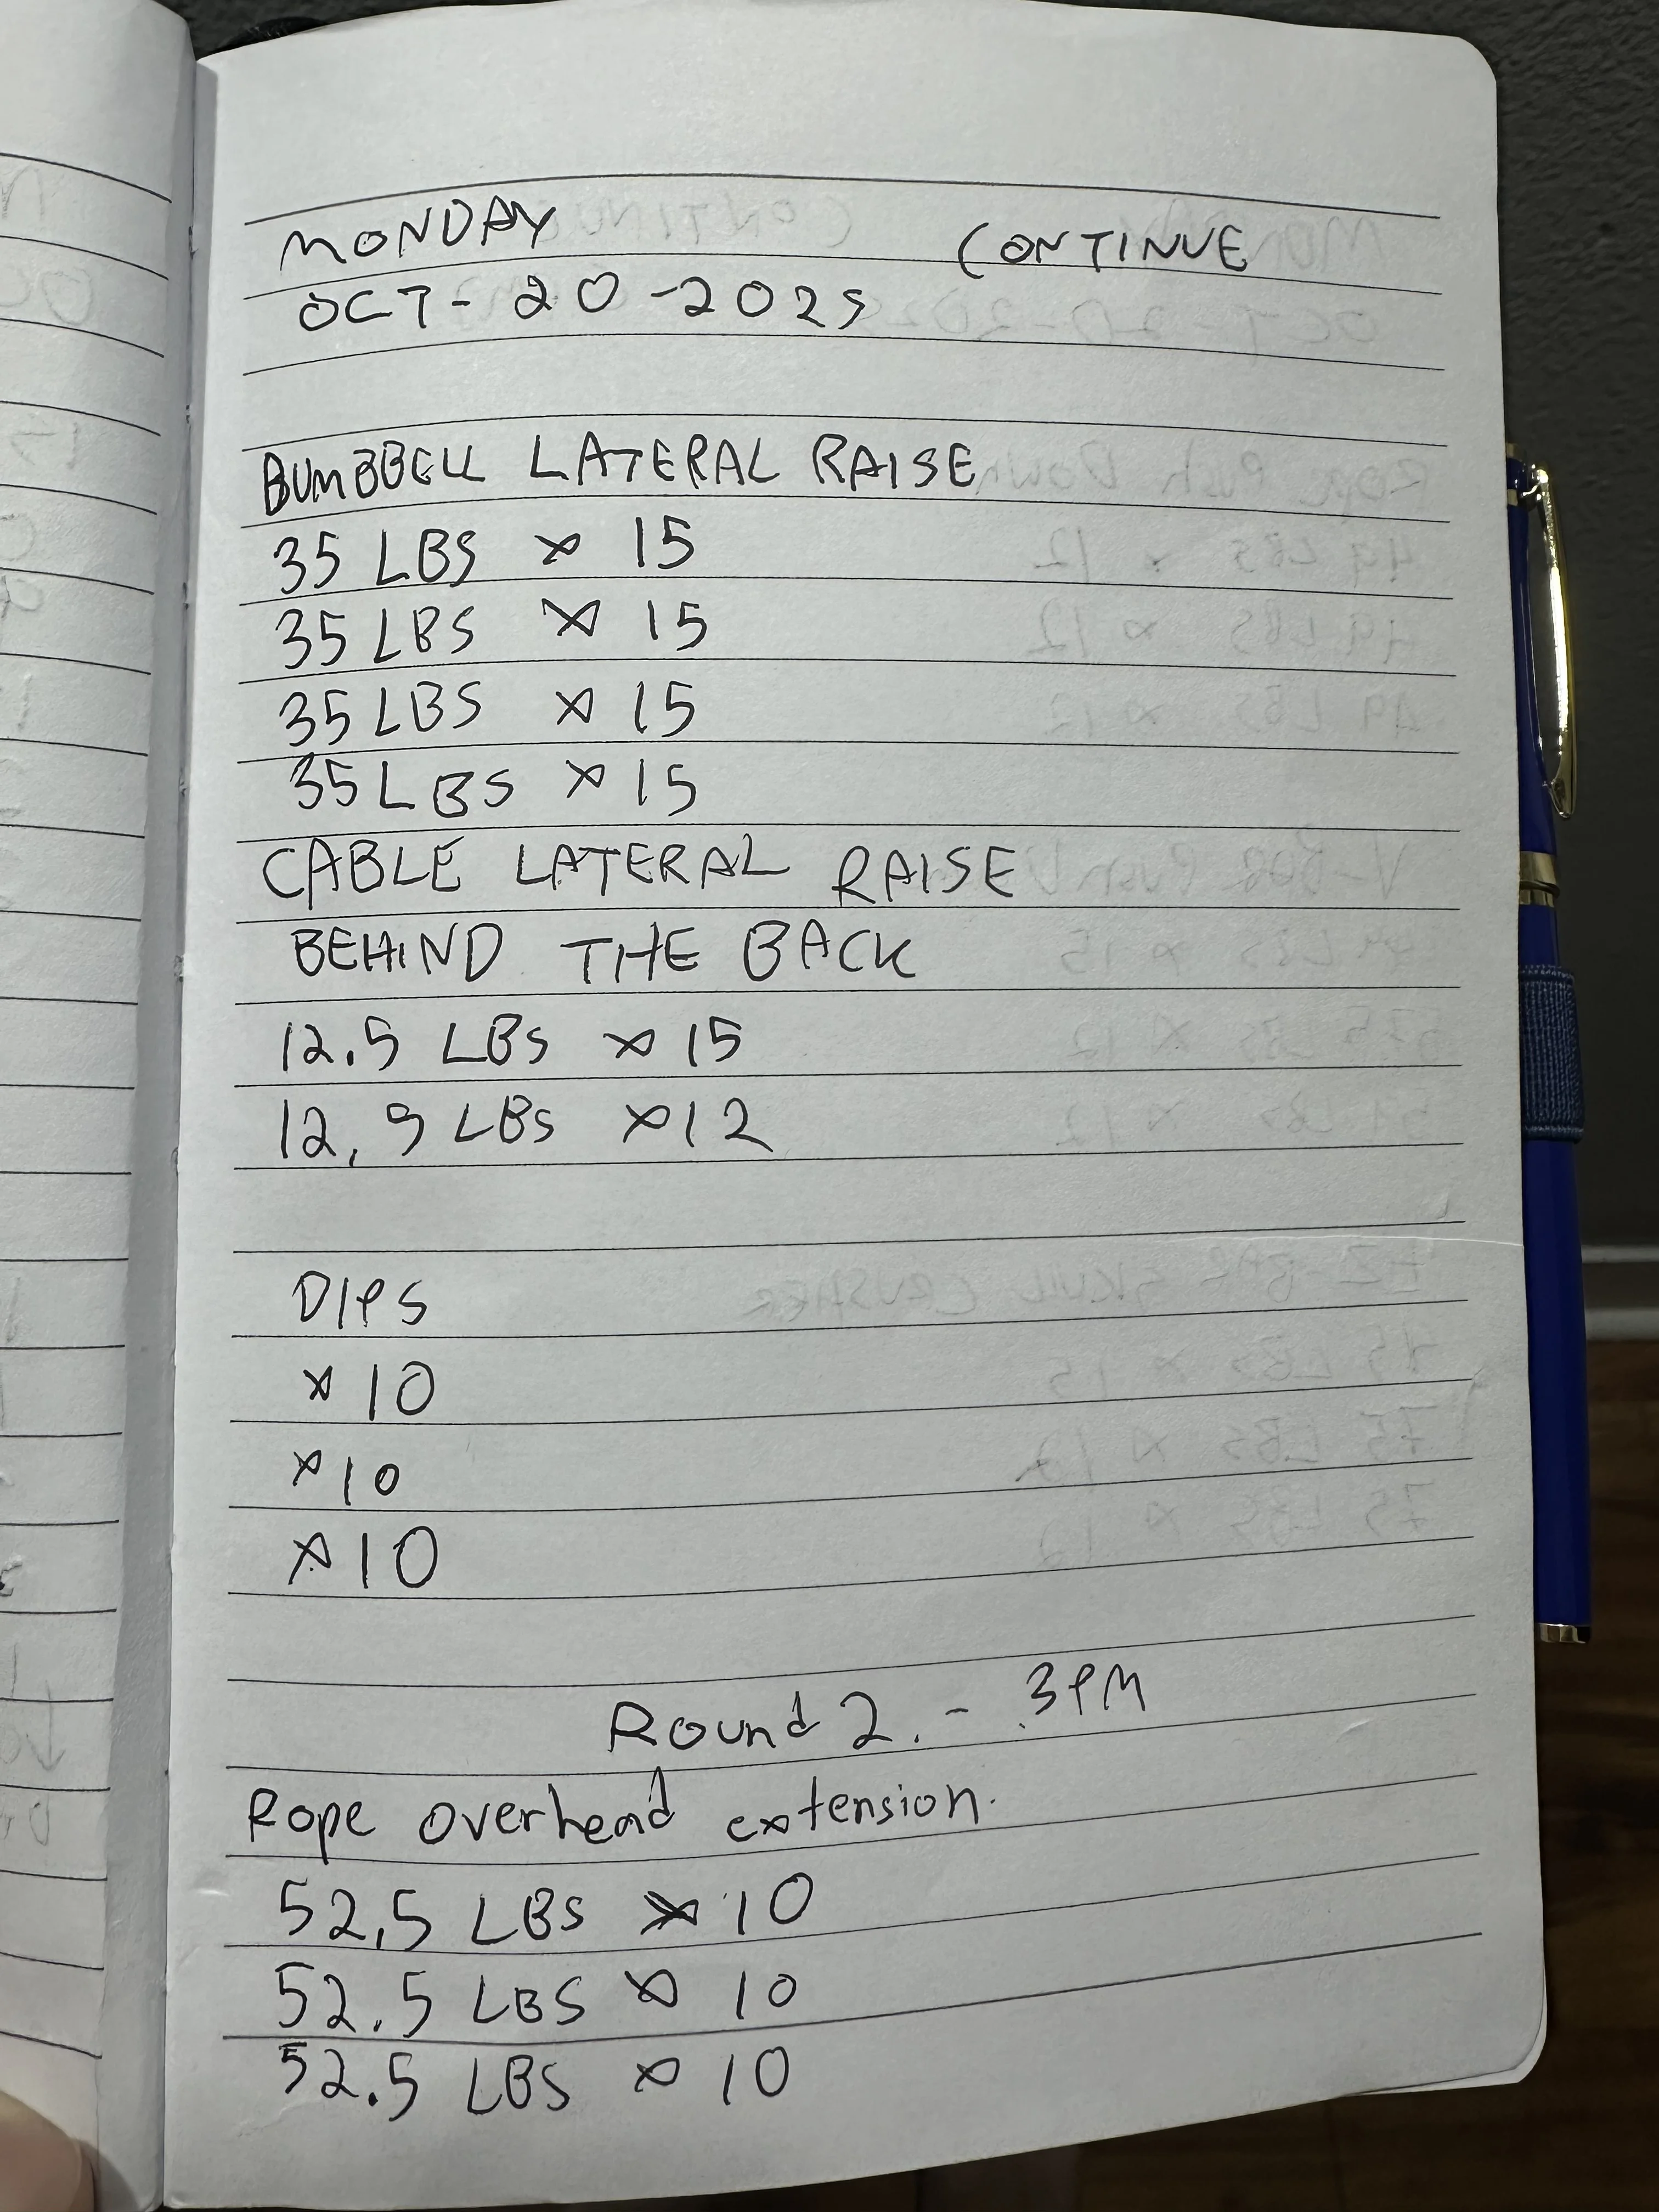 MONDAY CONTINUE
OCT - 20 - 2025
BUMBBELL LATERAL RAISE
35 LBS x 15
35 LBS x 15
35 LBS x 15
35 LBS x 15
CABLE LATERAL RAISE
BEHIND THE BACK
12.5 LBS x 15
12,5 LBS x 12
DIPS
x 10
x 10
x 10
Round 2. - 3PM
Rope overhead extension.
52,5 LBS x 10
52.5 LBS x 10
52.5 LBS x 10